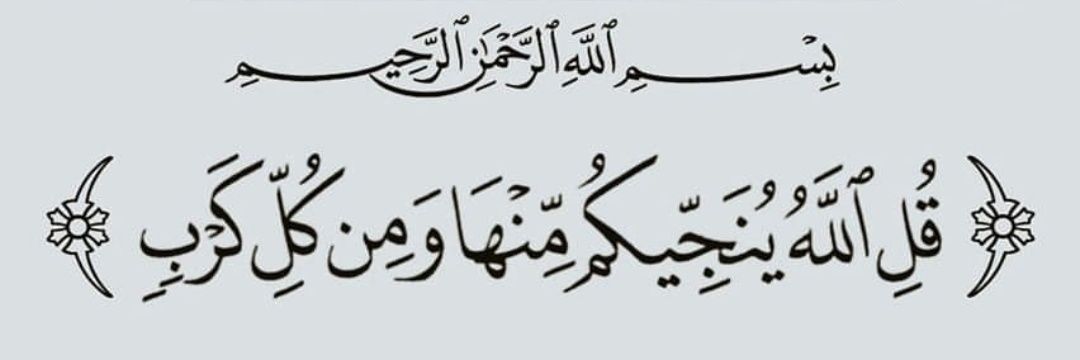 بِسْمِ ٱللَّهِ ٱلرَّحْمَٰنِ ٱلرَّحِيمِ
﴿ قُلِ ٱللَّهُ يُنَجِّيكُم مِّنْهَا وَمِن كُلِّ كَرْبٍ ﴾